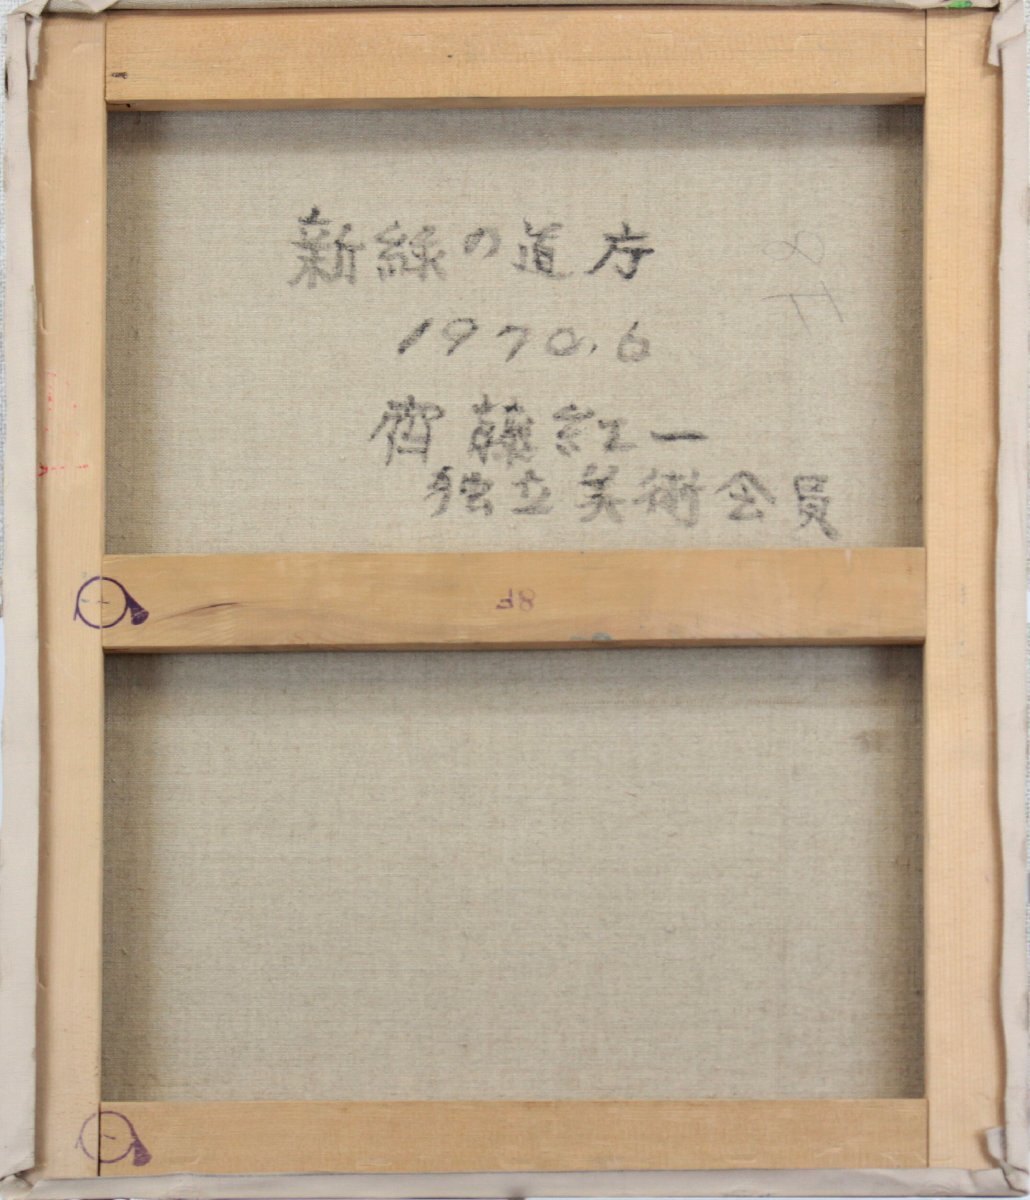 新緑の道庁
1970.6
齊藤紅一
独立美術会員
8F
8F